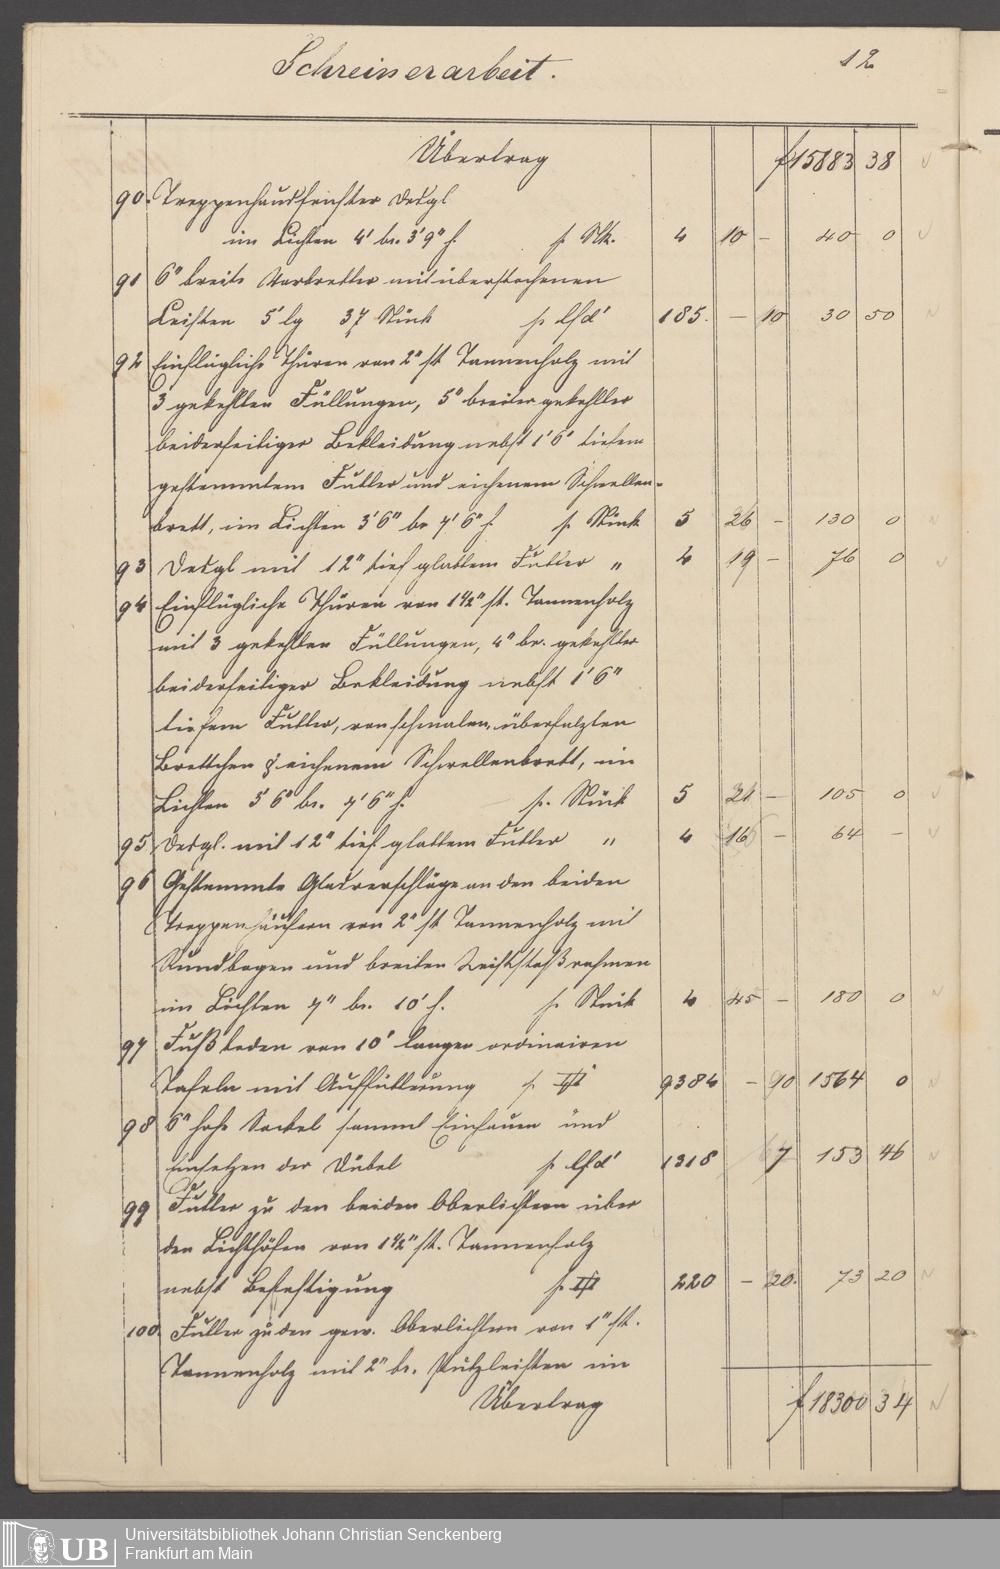 Schreinerarbeit.
12
Übertrag f 15883 38
90. Treppenhausfenster desgl
im Lichten 4' br. 3'9" h. p. Stk. 4 10 – 40 0
91 6" breite Vorbretter mit überstochenen
Leisten 5' lg 37 Stück p lfd' 185. – 10 30 50
92 Einflügliche Thüren von 2" st Tannenholz mit
3 gekehlten Füllungen, 5" breiter gekehlter
beiderseitiger Bekleidung nebst 1'6" tiefem
gestemmtem Futter und eichenem Schwellen-
brett, im Lichten 3'6" br 7'6" h. p. Stück 5 26 – 130 0
93 Desgl mit 12" tief glattem Futter " 4 19 – 76 0
94 Einflügliche Thüren von 1 1/2" st. Tannenholz
mit 3 gekehlten Füllungen, 4" br. gekehlter
beiderseitiger Bekleidung nebst 1'6"
tiefem Futter, von schmalen, überfalzten
Brettchen & eichenem Schwellenbrett, im
Lichten 3'6" br. 7'6" h. p. Stück 5 21 – 105 0
95 Desgl. mit 12" tief glattem Futter " 4 16 – 64 –
96 Gestemmte Glasverschläge an den beiden
Treppenhäusern von 2" st Tannenholz mit
Rundbogen und breiten rahmen
im Lichten 7" br. 10' h. p. Stück 4 45 – 180 0
97 Fußboden von 10' langen ordinairen
Tafeln mit Auffütterung p. 9384 – 10 1564 0
98 6" hohe Sockel sammt Einhauen und
Einsetzen der Dübel p. lfd' 1318 7 153 46
99 Futter zu den beiden Oberlichtern über
den Lichthöfen von 1 1/2" st. Tannenholz
nebst Befestigung p. 220 – 20. 73 20
100. Futter zu den gew. Oberlichtern von 1" st.
Tannenholz mit 2" br. Putzleisten im
Übertrag f 18300 34
UB Universitätsbibliothek Johann Christian Senckenberg
Frankfurt am Main